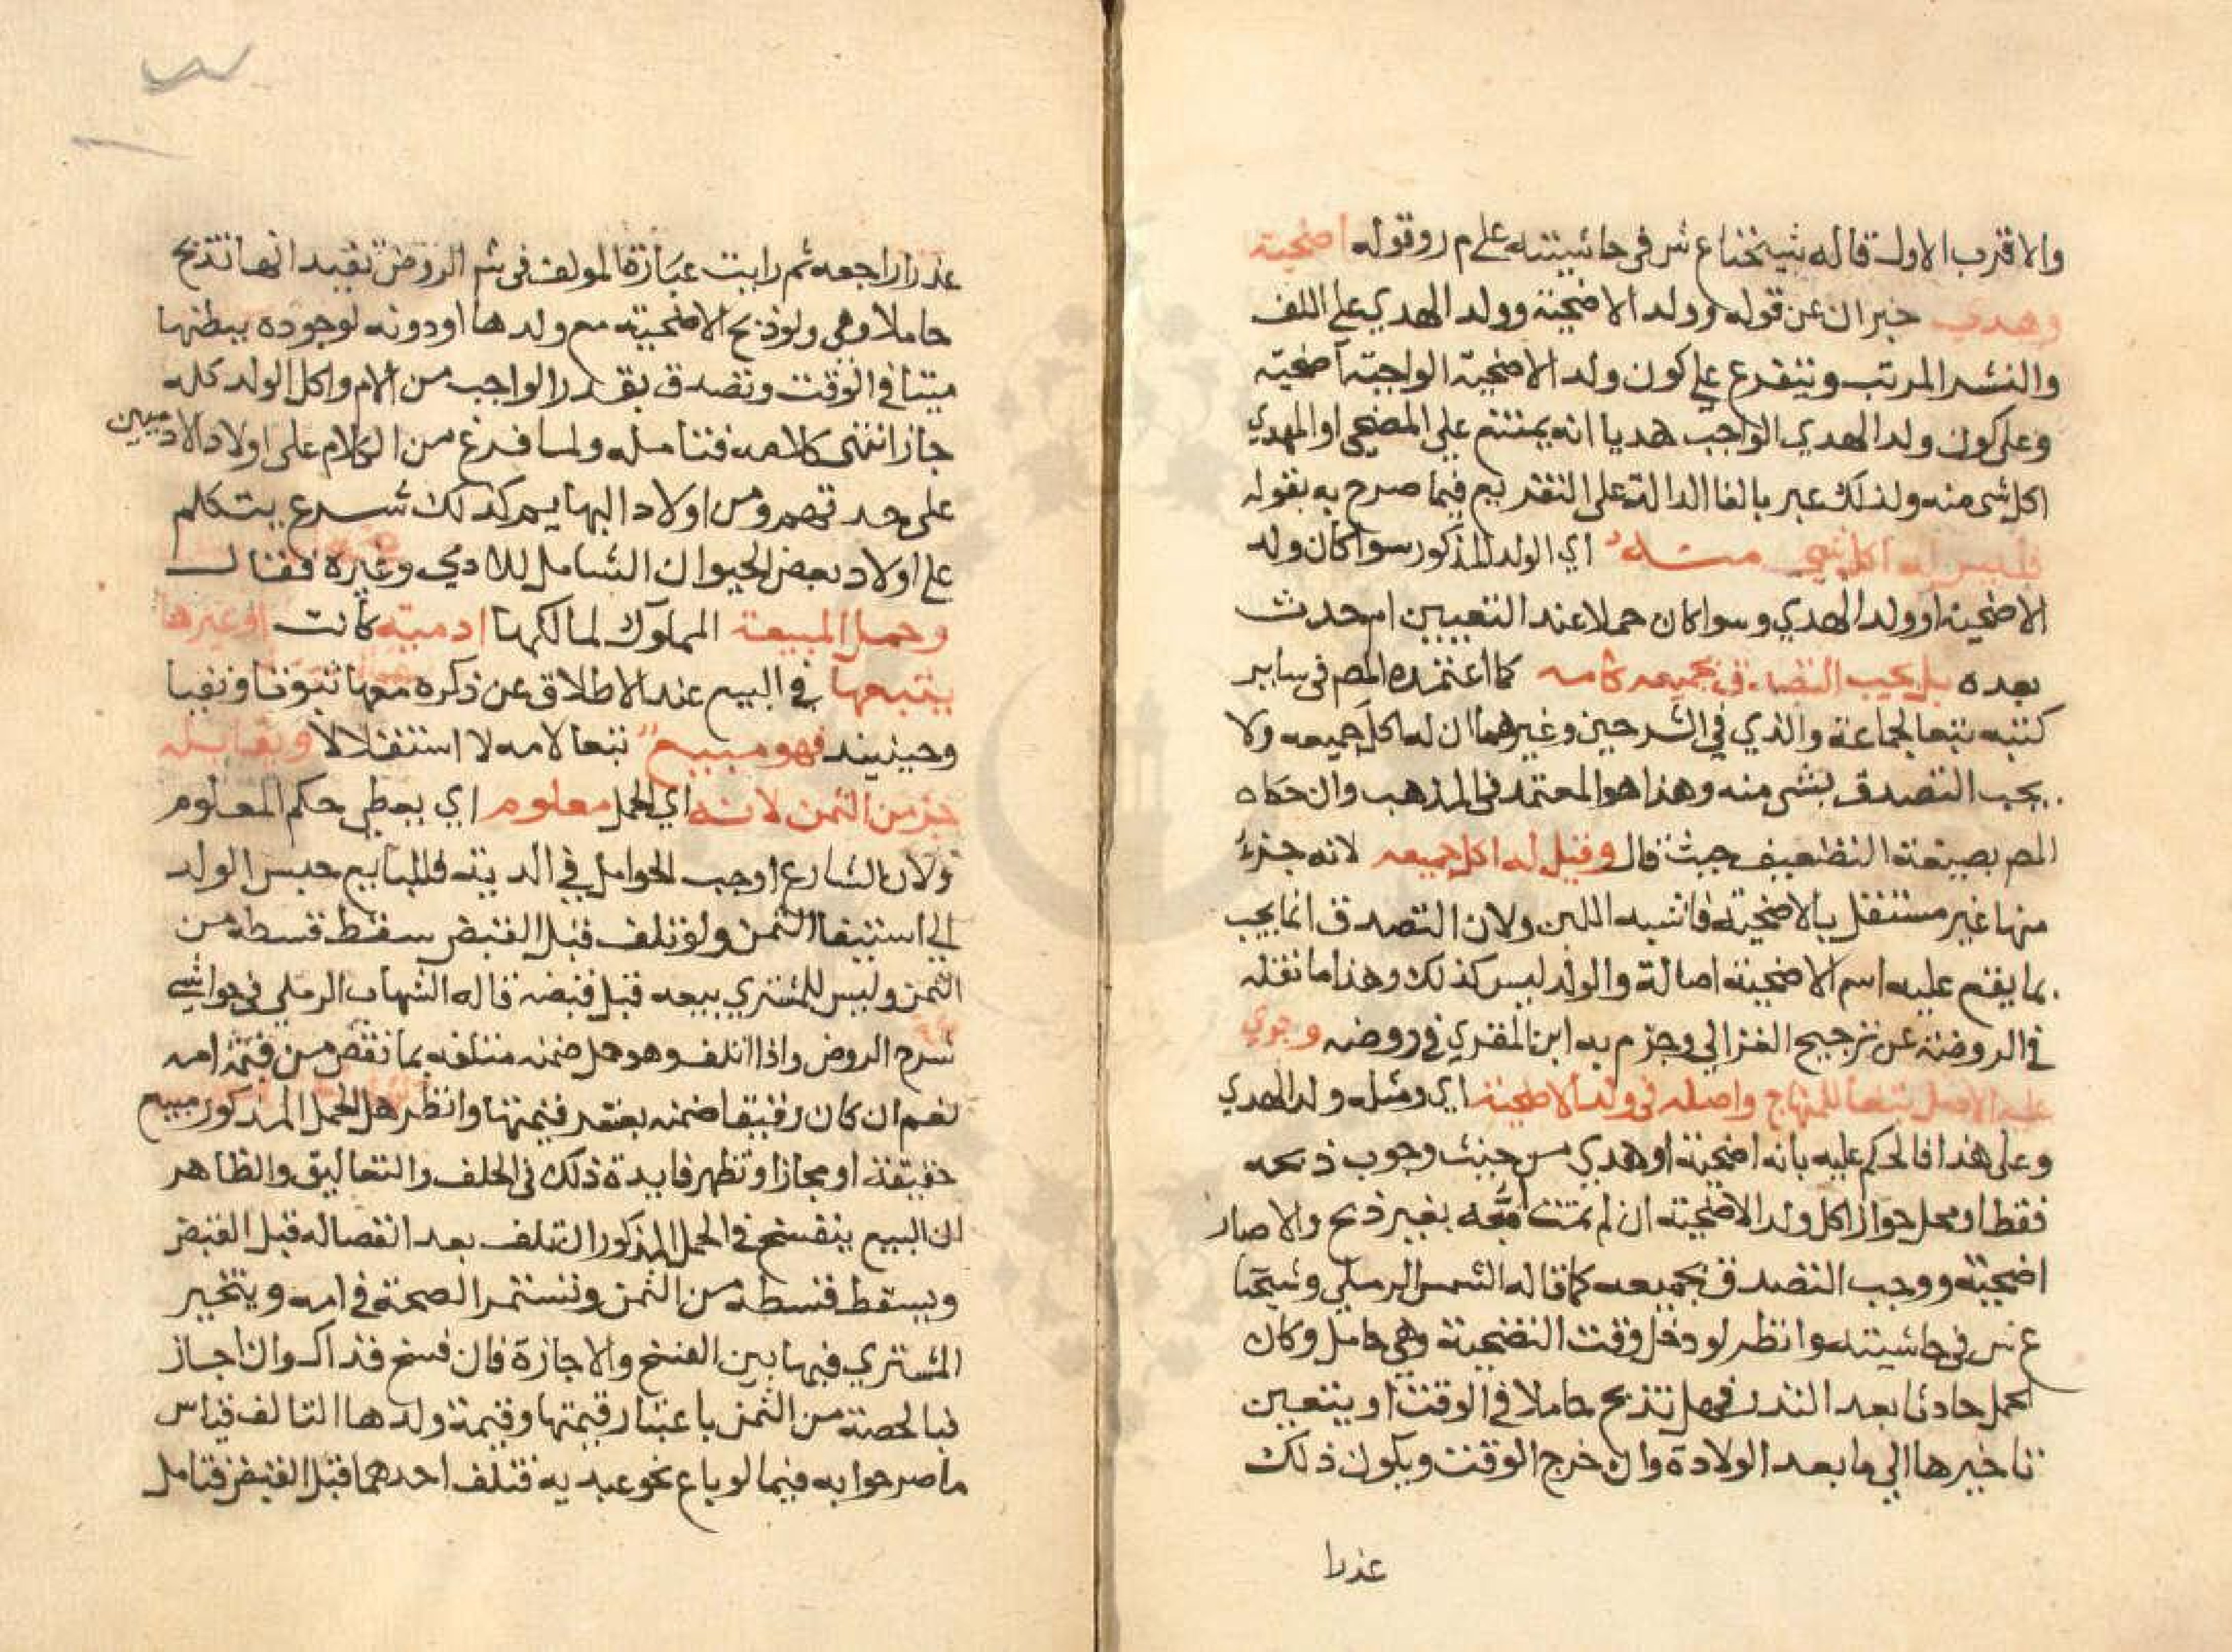 والاقرب الاول قاله شيخنا ع ش في حاشيته على م ر وقوله اضحية
وهدي خبران عن قوله وولد الاضحية وولد الهدي على اللف
والنشر المرتب ويتفرع على كون ولد الاضحية الواجبة اضحية
وعلى كون ولد الهدي الواجب هديا انه يمتنع على المضحي او المهدي
اكل شي منه ولذلك عبر بالفا الدالة على التفريع فيما صرح به بقوله
فليس له اكل شي منه اي الولد المذكور سوا كان ولد
الاضحية او ولد الهدي وسوا كان حملا عند التعيين ام حدث
بعده بل يجب التصدق بجميعه كامه كما اعتمده المص في ساير
كتبه تبعا لجماعة والذي في الشرحين وغيرهما ان له اكل جميعه ولا
يجب التصدق بشي منه وهذا هو المعتمد في المذهب وان حكاه
المص بصيغة التضعيف حيث قال وقيل له اكل جميعه لانه جزء
منها غير مستقل بالاضحية فاشبه اللبن ولان التصدق انما يجب
بما يقع عليه اسم الاضحية اصالة والولد ليس كذلك وهذا ما نقله
في الروضة عن ترجيح الغزالي وجزم به ابن المقري في روضه وجري
عليه الاصل تبعا للمنهاج واصله في ولد الاضحية اي ومثله ولد الهدي
وعلى هذا فالحكم عليه بانه اضحية او هدي من حيث وجوب ذبحه
فقط او محل جواز اكل ولد الاضحية ان لم تمت امه بغير ذبح والا صار
اضحية ووجب التصدق بجميعه كما قاله الشمس الرملي وشيخنا
ع ش في حاشيته وانظر لو دخل وقت التضحية وهي حامل وكان
الحمل حادثا بعد النذر فهل تذبح حاملا في الوقت او يتعين
تاخيرها الى ما بعد الولادة وان خرج الوقت ويكون ذلك
عذرا
عذرا راجعه ثم رايت عبارة المولف في شر الروض تفيد انها تذبح
حاملا وهي ولو ذبح الاضحية مع ولدها او دونه لوجوده ببطنها
ميتا في الوقت وتصدق بقدر الواجب من الام واكل الولد كله
جاز انتهى كلامه فتامله ولما فرغ من الكلام على اولاد الادميين
على حدتهم ومن اولاد البهايم كذلك شرع يتكلم
على اولاد بعض الحيوان الشامل للادمي وغيره فقال
وحمل المبيعة المملوك لمالكها ادمية كانت او غيرها
يتبعها في البيع عند الاطلاق عن ذكره معها ثبوتا ونفيا
وحينيند فهو مبيع تبعا لامه لا استقلالا ويقابله
جزء من الثمن لانه اي الحمل معلوم اي يعطى حكم المعلوم
ولان الشارع اوجب الحوامل في الدية فللبايع حبس الولد
الى استيفا الثمن ولو تلف قبل القبض سقط قسطه من
الثمن وليس للمشتري بيعه قبل قبضه قاله الشهاب الرملي في حواشي
شرح الروض واذا اتلف وهو حمل ضمنه متلفه بما نقص من قيمة امه
نعم ان كان رقيقا ضمنه بعشر قيمتها وانظر هل الحمل المذكور مبيع
حقيقة او مجازا وتظهر فايدة ذلك في الحلف والتعاليق والظاهر
ان البيع ينفسخ في الحمل المذكور ان تلف بعد انفصاله قبل القبض
ويسقط قسطه من الثمن وتستمر الصحة في امه ويتخير
المشتري فيها بين الفسخ والاجازة فان فسخ فذاك وان اجاز
فبالحصة من الثمن باعتبار قيمتها وقيمة ولدها التالف قياس
ما صرحوا به فيما لو باع نحو عبديه فتلف احدهما قبل القبض فتامل